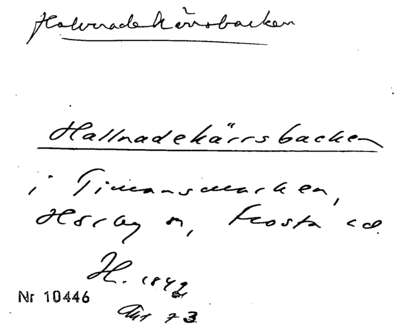 Halvradekärrsbacken
Hallnadekärrsbacken
i Timansmarken,
Hörby sn, Frosta hd.
H. 1849
Nr 10446
Akt 73